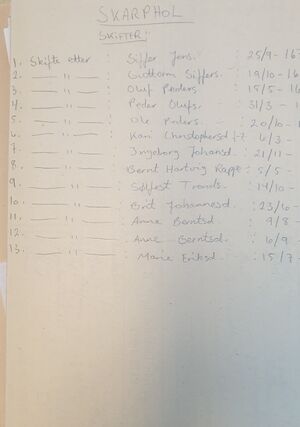 SKARPHOL
SKIFTER:
1. Skifte etter : Siffer Jens. : 25/9 - 16
2. — " — : Guttorm Siffers. : 19/10 - 16
3. — " — : Oluf Peders : 15/5 - 16
4. — " — : Peder Olufs. : 31/3 - 1
5. — " — : Ole Peders. : 20/10 - 1
6. — " — : Kari Christophersd : 4/3 -
7. — " — : Ingeborg Johansd. : 21/11 -
8. — " — : Bernt Hartvig Rapp : 5/5 -
9. — " — : Siffert Tronds. : 14/10 -
10. — " — : Brit Johannesd. : 23/6 -
11. — " — : Anne Berntsd. : 9/8
12. — " — : Anne Berntsd. : 6/9
13. — " — : Marie Eriksd. : 15/7